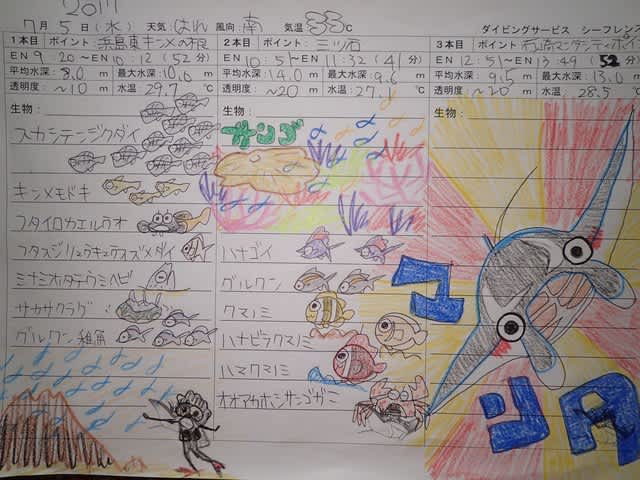 2017
7月5日(水) 天気:はれ 風向:南 気温 33℃
ダイビングサービス シーフレンズ
1本目 ポイント:浜島東キンメの根
EN 9:20~EN 10:12(52分)
平均水深:8.0m 最大水深:10.0m
透明度:~10m 水温:29.7℃
生物:
スカシテンジクダイ
キンメモドキ
フタイロカエルウオ
フタスジリュウキュウスズメダイ
ミナミホタテウミヘビ
サカサクラゲ
グルクン稚魚
2本目 ポイント:三ツ石
EN 10:51~EN 11:32(41分)
平均水深:14.0m 最大水深:9.6m
透明度:~20m 水温:27.1℃
生物:
サンゴ
ハナゴイ
グルクン
クマノミ
ハナビラクマノミ
ハマクマノミ
オオアカホシサンゴガニ
3本目 ポイント:石崎マンタ
EN 12:51~EN 13:49(52分)
平均水深:9.5m 最大水深:13.0m
透明度:~20m 水温:28.5℃
生物:
マンタ